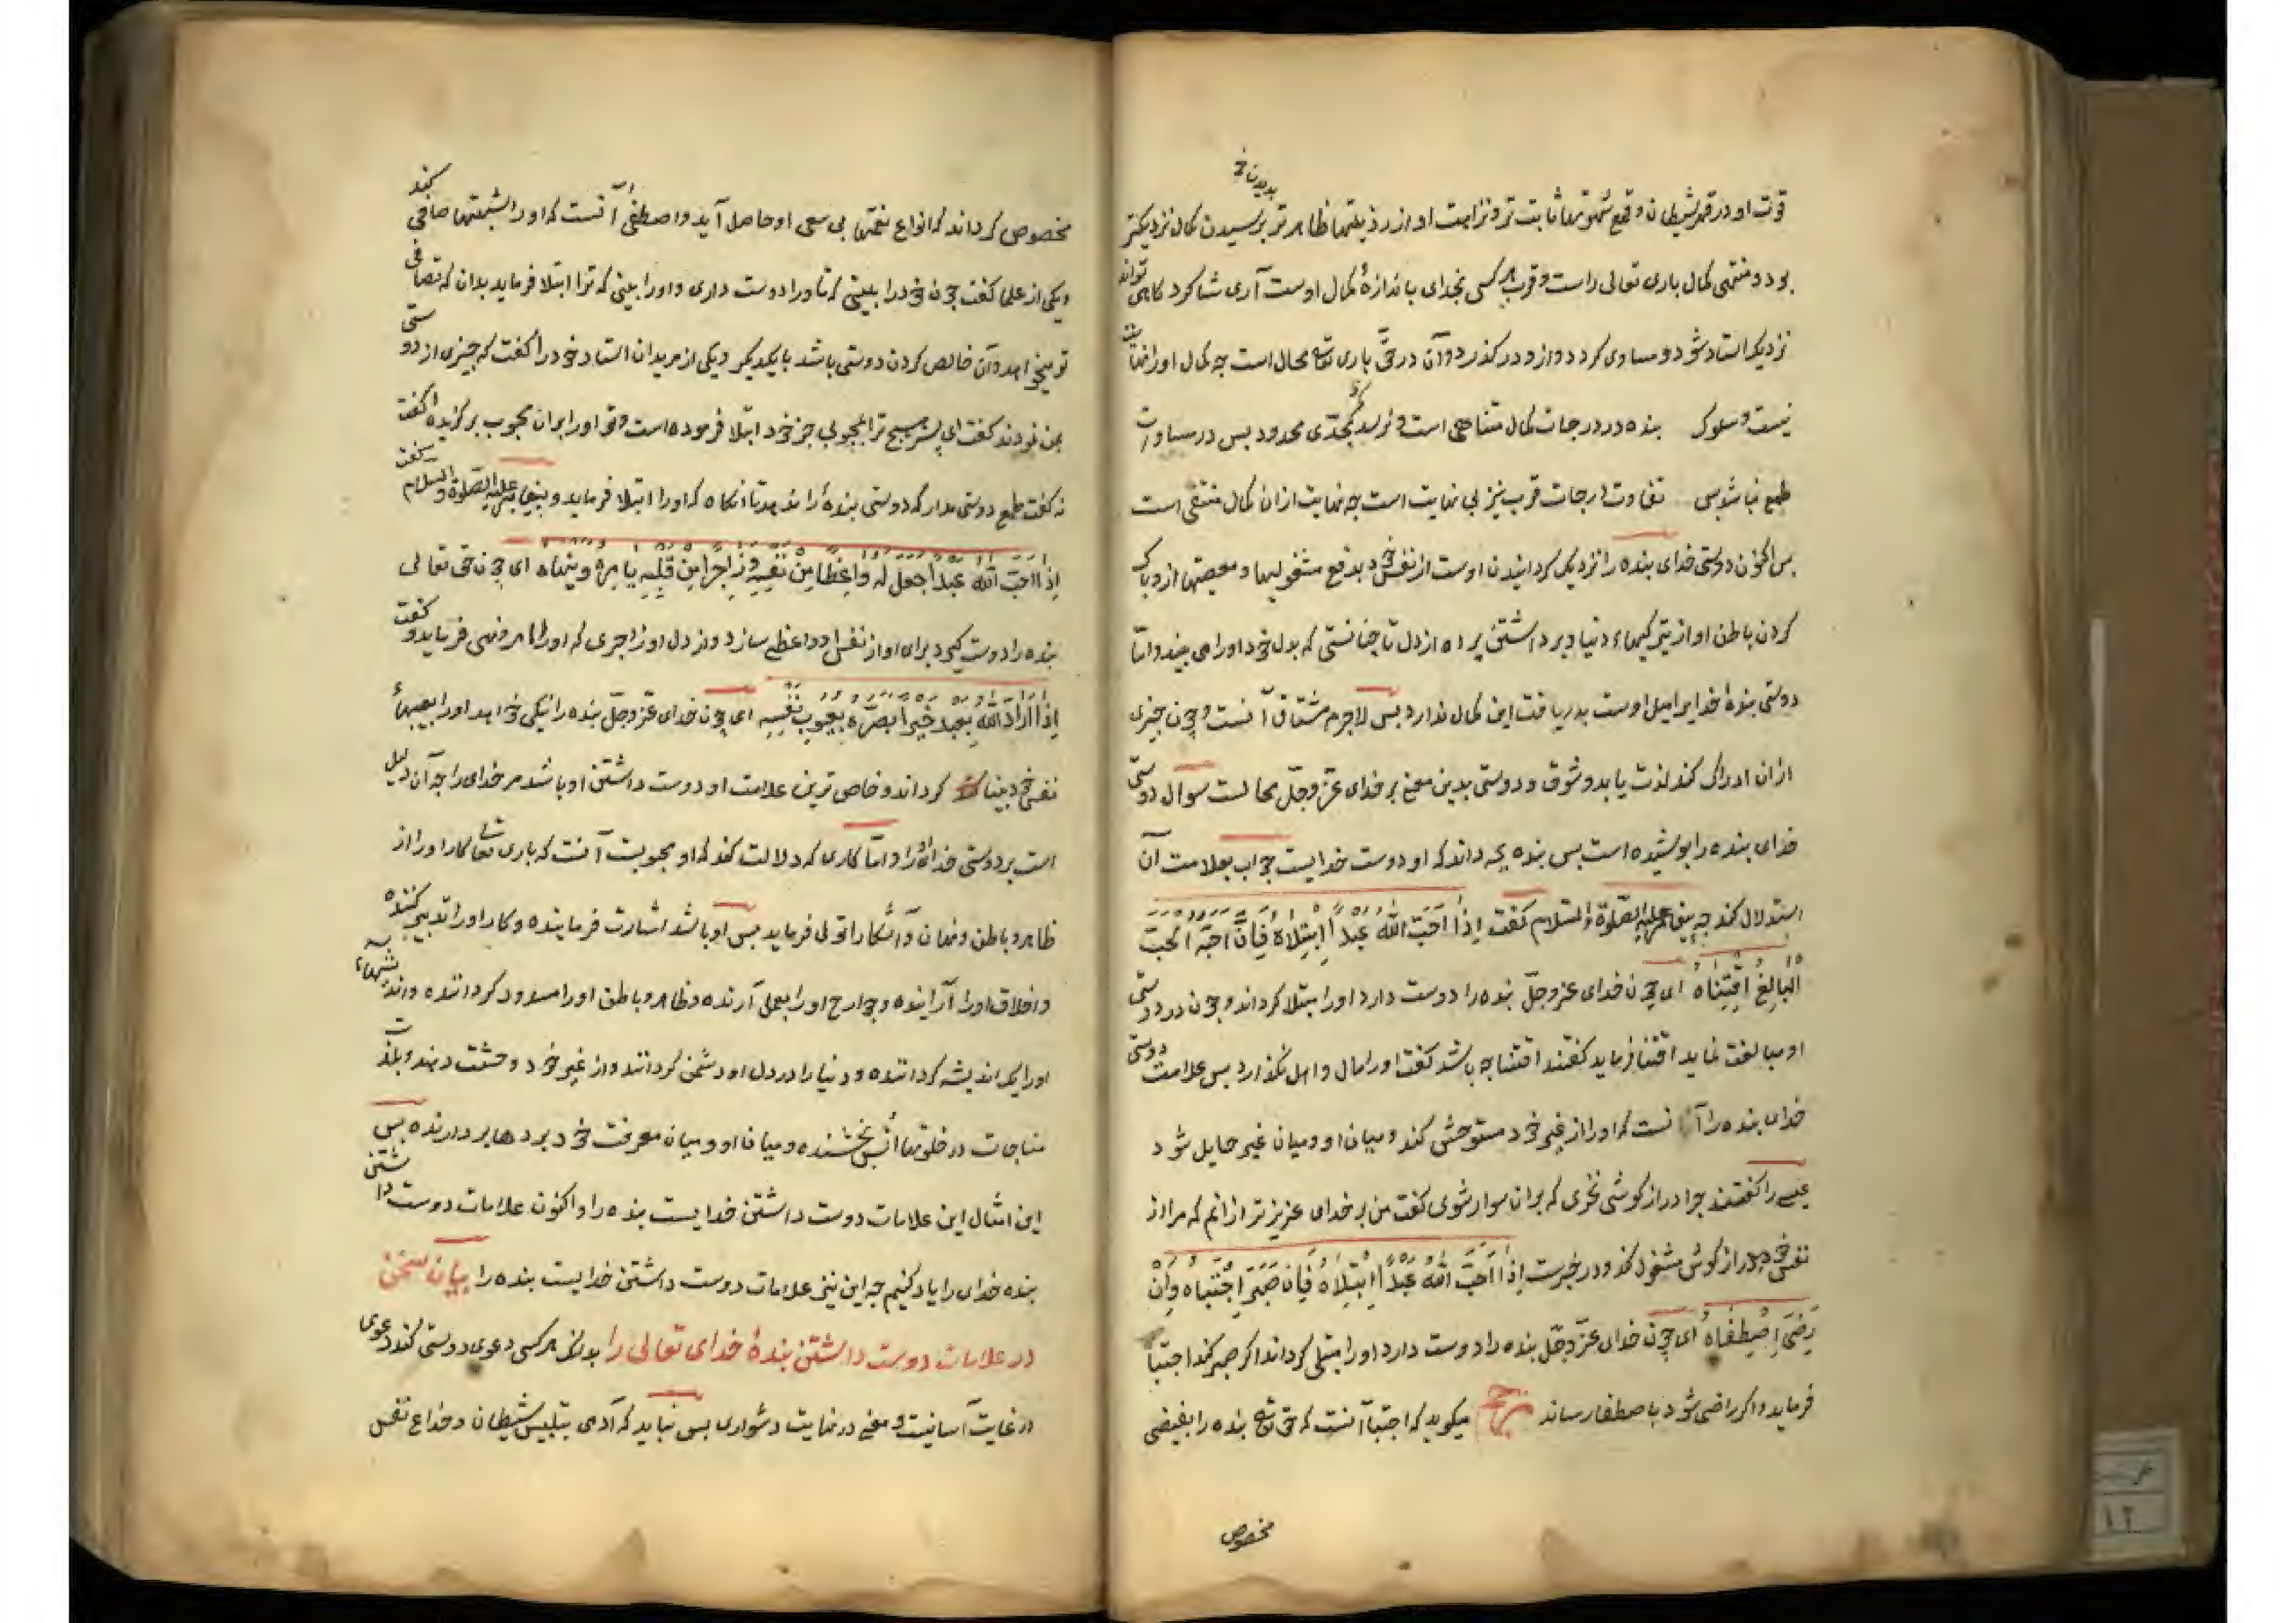 قوت او در قهر شیطان و قمع شهوتها ثابت تر و نزاهت او از رذیلتها ظاهر تر برسیدن کمال نزدیکتر
بود و منتهی کمال باری تعالی راست و قرب هر کسی بخدای باندازهٔ کمال اوست آری شاکرد کاهی تواند
نزدیک استاد شود و مساوی کردد و ازو در کذرد و آن در حق باری تع محال است چه کمال او را نهایت
نیست و سلوک بنده در درجات کمال متناهی است و نرسد مکر بحدی محدود بس در مساوات
طمع نباشد بس تفاوت درجات قرب نیز بی نهایت است چه نهایت از ان کمال منتفی است
بس اکنون دوستی خدای بنده را نزدیک کردانیدن اوست از نفس خود بدفع مشغولیها و معصیتها ازو و پاک
کردن باطن او از تیرکیهاء دنیا و برداشتن پرده از دل تا چنانستی که بدل خود او را می بیند و اما
دوستی بندهٔ خدایرا میل اوست بدریافت این کمال ندارد بس لاجرم مشتاق آنست و چون چیزی
ازان ادراک کند لذت یابد و شوق و دوستی بدین معنی بر خدای عز و جل محالست سوال دوستی
خدای بنده را پوشیده است بس بنده بچه داند که او دوست خدایست جواب بعلامت آن
استدلال کند چه پیغامبر علیه الصلوة والسلام کفت اِذَا اَحَبَّ اللهُ عَبْداً اِبْتِلَاهُ فَاِنْ اَحَبَّهُ الحُبَّ
البَالِغَ اقْتَنَاهُ ای چون خدای عز و جل بنده را دوست دارد او را مبتلا کرداند و چون در دوستی
او مبالغت نماید اقتنا فرماید کفتند اقتنا چه باشد کفت او را مال و اهل نکذارد بس علامت دوستی
خدای بنده را آنست که او را از غیر خود مستوحش کند و میان او و میان غیر حایل شود
عیسی را کفتند چرا دراز کوشی نخری که بران سوار شوی کفت من بر خدای عزیز تر ازانم که مرا از
نفس خود بدراز کوش مشغول کند و در خبرست اِذَا اَحَبَّ اللهُ عَبْداً اِبْتِلَاهُ فَاِنْ صَبَرَ اِجْتَبَاهُ وَاِنْ
رَضِیَ اِصْطَفَاهُ ای چون خدای عز و جل بنده را دوست دارد او را مبتلی کرداند اکر صبر کند اجتبا
فرماید و اکر راضی شود باصطفا رساند میکوید که اجتبا آنست که حق تع بنده را بفیضی
مخصوص
مخصوص کرداند که انواع نعمتها بی سعی او حاصل آید و اصطفی آنست که او را صافی کند
ویکی از علما کفت چون خود را بینی که تو او را دوست داری و او را بینی که ترا ابتلا فرماید بدان که تصافی
تو میخواهد و آن خالص کردن دوستی باشد با یکدیکر ویکی از مریدان استاد خود را کفت که چیزی از دوستی
بمن نمودند کفت ای پسر هیچ ترا بمحبوبی جز خود ابتلا فرموده است و تو او را بران محبوب برکزیدهٔ کفت
نه کفت طمع دوستی مدار که دوستی بندهٔ را ندهد تا انکاه که او را ابتلا فرماید و پیغامبر علیه الصلوة والسلام کفت
اِذَا اَحَبَّ اللهُ عَبْداً جَعَلَ لَهُ وَاعِظاً مِنْ نَفْسِهِ وَزَاجِراً مِنْ قَلْبِهِ یَامُرُهُ وَیَنْهَاهُ ای چون حق تعالی
بنده را دوست کیرد برای او از نفس او واعظی سازد و از دل او زاجری که او را امر و نهی فرماید و کفت
اِذَا اَرَادَ اللهُ بِعَبْدٍ خَیْراً بَصَّرَهُ بِعُیُوبِ نَفْسِهِ ای چون خدای عز و جل بنده را نیکی خواهد او را بعیبهاء
نفس خود بینا کرداند و خاص ترین علامت او دوست داشتن او باشد مر خدای را چه آن دلیل
است بر دوستی خدای او را و اما کاری که دلالت کند که او محبوبست آنست که باری تعالی کار او را از
ظاهر و باطن و نهان و آشکارا تولی فرماید بس او باشد اشارت فرماینده و کار او را تدبیر کننده
و اخلاق او را آراینده و جوارح او را بعمل آرنده و ظاهر و باطن او را مسدود کرداننده و اندیشهاء
او را یک اندیشه کرداننده و دنیا را در دل او دشمن کرداننده و از غیر خود وحشت دهنده و بلذت
مناجات در خلوتها انس بخشنده و میان او و میان معرفت خود پردها بر دارنده بس
این امثال این علامات دوست داشتن خدایست بنده را و اکنون علامات دوست داشتن
بنده خدای را یاد کنیم چه این نیز علامات دوست داشتن خدایست بنده را بیان سخن
در علامات دوست داشتن بندهٔ خدای تعالی را بدانکه هر کسی دعوی دوستی کند و دعوی
در غایت آسانیست و معنی در نهایت دشواری بس نباید که آدمی بتلبیس شیطان و خداع نفس